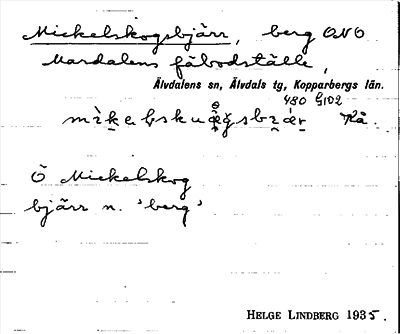 Mickelskogsbjärr, berg ONO
Mardalens fäbodställe,
Älvdalens sn, Älvdals tg, Kopparbergs län.
480 G102
Rå.
Ö Mickelskog
bjärr n. 'berg'
HELGE LINDBERG 1935.